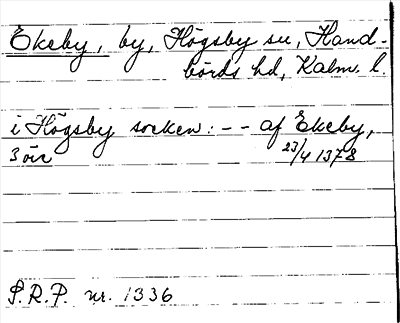 Ekeby, by, Högsby sn, Hand-
börds hd, Kalm. l.
i Högsby socken: -- af Ekeby,
3 öre 23/4 1378
S.R.P. nr. 1336